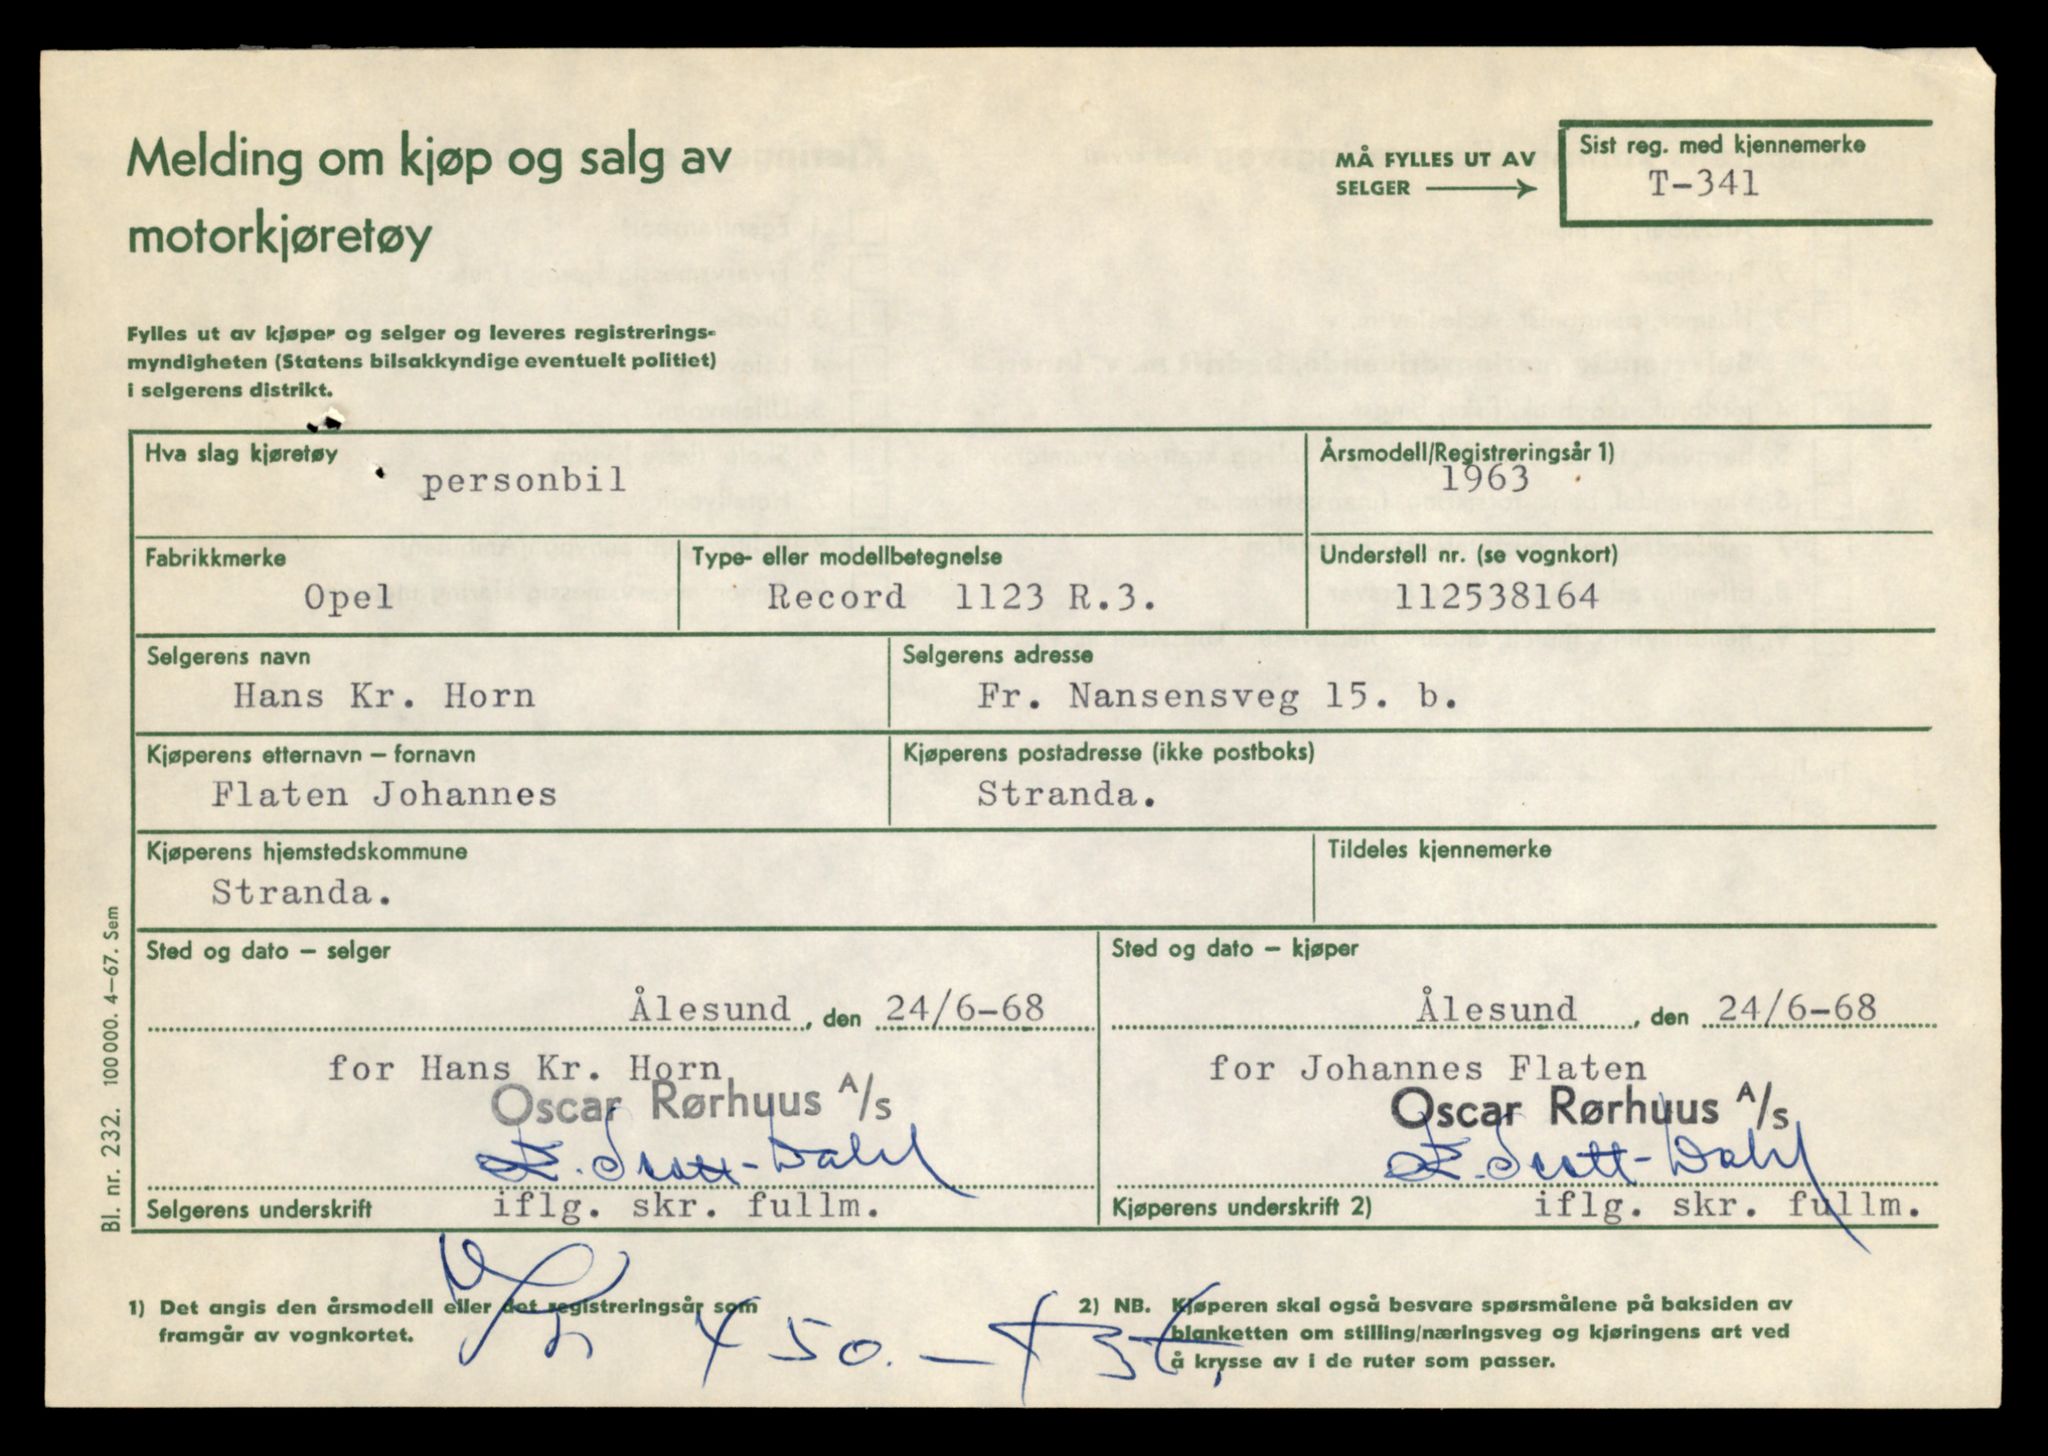 Melding om kjøp og salg av
motorkjøretøy
MÅ FYLLES UT AV
SELGER
Sist reg. med kjennemerke
T-341
Fylles ut av kjøper og selger og leveres registrerings-
myndigheten (Statens bilsakkyndige eventuelt politiet)
i selgerens distrikt.
Hva slag kjøretøy
personbil
Årsmodell/Registreringsår 1)
1963
Fabrikkmerke
Opel
Type- eller modellbetegnelse
Record 1123 R.3.
Understell nr. (se vognkort)
112538164
Selgerens navn
Hans Kr. Horn
Selgerens adresse
Fr. Nansensveg 15. b.
Kjøperens etternavn – fornavn
Flaten Johannes
Kjøperens postadresse (ikke postboks)
Stranda.
Kjøperens hjemstedskommune
Stranda.
Tildeles kjennemerke
Sted og dato – selger
Ålesund, den 24/6-68
for Hans Kr. Horn
Oscar Rørhuus A/s
E. Scott-Dahl
Selgerens underskrift iflg. skr. fullm.
Sted og dato – kjøper
Ålesund, den 24/6-68
for Johannes Flaten
Oscar Rørhuus A/s
E. Scott-Dahl
Kjøperens underskrift 2) iflg. skr. fullm.
1) Det angis den årsmodell eller det registreringsår som
framgår av vognkortet.
2) NB. Kjøperen skal også besvare spørsmålene på baksiden av
blanketten om stilling/næringsveg og kjøringens art ved
å krysse av i de ruter som passer.
Bl. nr. 232. 100 000. 4–67. Sem